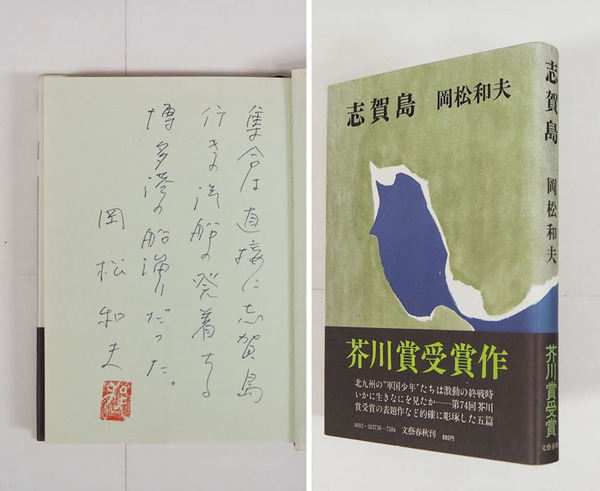 集合は直接に志賀島
行きの汽船の発着する
博多港の船溜りだった。
岡松和夫
志賀島 岡松和夫
芥川賞受賞作
北九州の“軍国少年”たちは激動の終戦時
いかに生きなにを見たか——第74回芥川
賞受賞の表題作など的確に彫琢した五篇
0093-303730-7384 文藝春秋刊 880円
志賀島 岡松和夫
芥川賞受賞
文藝春秋